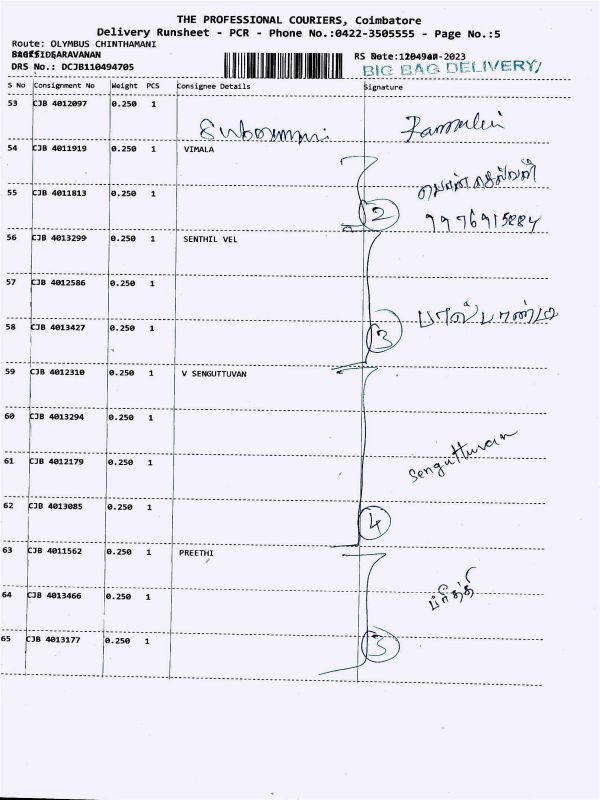 THE PROFESSIONAL COURIERS, Coimbatore
Delivery Runsheet - PCR - Phone No.:0422-3505555 - Page No.:5
Route: OLYMBUS CHINTHAMANI
SARAVANAN
RS
DRS No.: DCJB110494705
BIG BAG DELIVERY/
S No Consignment No Weight PCS Consignee Details Signature
53 CJB 4012097 0.250 1
54 CJB 4011919 0.250 1 VIMALA
55 CJB 4011813 0.250 1
2
9976915884
56 CJB 4013299 0.250 1 SENTHIL VEL
57 CJB 4012586 0.250 1
பால்பாண்டி
58 CJB 4013427 0.250 1
3
59 CJB 4012310 0.250 1 V SENGUTTUVAN
60 CJB 4013294 0.250 1
Senguttuvan
61 CJB 4012179 0.250 1
62 CJB 4013085 0.250 1
4
63 CJB 4011562 0.250 1 PREETHI
64 CJB 4013466 0.250 1
ப்ரித்தி
65 CJB 4013177 0.250 1
3